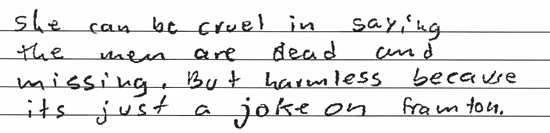 She can be cruel in saying
the men are dead and
missing. But harmless because
its just a joke on framton.